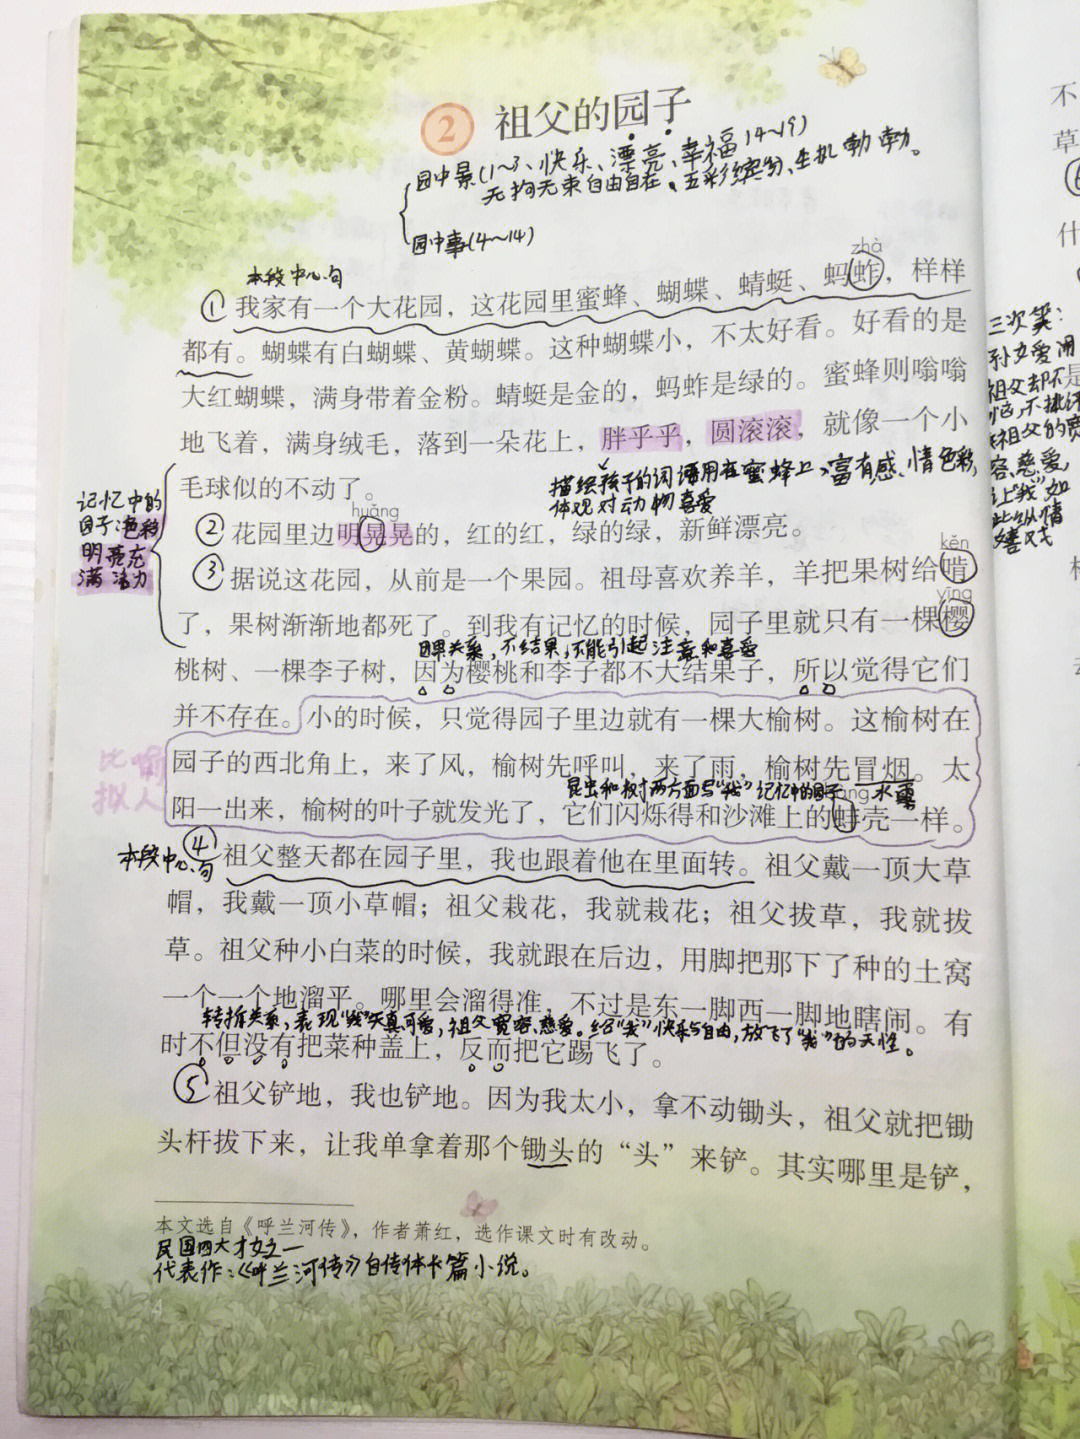 2 祖父的园子
园中景(1~3、快乐、漂亮、幸福14~19)
无拘无束自由自在、五彩缤纷、生机勃勃。
园中事(4~14)
本段中心句
zhà
①我家有一个大花园，这花园里蜜蜂、蝴蝶、蜻蜓、蚂蚱，样样
都有。蝴蝶有白蝴蝶、黄蝴蝶。这种蝴蝶小，不太好看。好看的是
大红蝴蝶，满身带着金粉。蜻蜓是金的，蚂蚱是绿的。蜜蜂则嗡嗡
地飞着，满身绒毛，落到一朵花上，胖乎乎，圆滚滚，就像一个小
毛球似的不动了。
描绘孩子的词语用在蜜蜂上，富有感情色彩，
体现对动物喜爱
huǎng
②花园里边明晃晃的，红的红，绿的绿，新鲜漂亮。
kěn
③据说这花园，从前是一个果园。祖母喜欢养羊，羊把果树给啃
yīng
了，果树渐渐地都死了。到我有记忆的时候，园子里就只有一棵樱
因果关系，不结果，不能引起注意和喜爱
桃树、一棵李子树，因为樱桃和李子都不大结果子，所以觉得它们
并不存在。小的时候，只觉得园子里边就有一棵大榆树。这榆树在
园子的西北角上，来了风，榆树先呼叫，来了雨，榆树先冒烟。太
昆虫和树两方面写"我"记忆中的园子
阳一出来，榆树的叶子就发光了，它们闪烁得和沙滩上的蚌壳一样。
记忆中的
园子:色彩
明亮充
满活力
比喻
拟人
本段中心句
④祖父整天都在园子里，我也跟着他在里面转。祖父戴一顶大草
帽，我戴一顶小草帽；祖父栽花，我就栽花；祖父拔草，我就拔
草。祖父种小白菜的时候，我就跟在后边，用脚把那下了种的土窝
一个一个地溜平。哪里会溜得准，不过是东一脚西一脚地瞎闹。有
转折关系，表现"我"天真可爱，祖父宽容、慈爱。给"我"快乐与自由，放飞了"我"的天性。
时不但没有把菜种盖上，反而把它踢飞了。
⑤祖父铲地，我也铲地。因为我太小，拿不动锄头，祖父就把锄
头杆拔下来，让我单拿着那个锄头的“头”来铲。其实哪里是铲，
本文选自《呼兰河传》，作者萧红，选作课文时有改动。
民国四大才女之一
代表作：《呼兰河传》自传体长篇小说。
4
不
草
什
三次笑：
祖父却不是
祖父的宽
容、慈爱，
让"我"如
此纵情
嬉戏